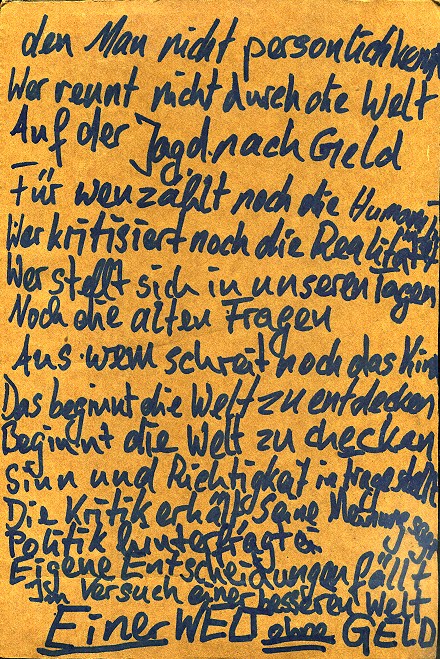 den Man nicht persönlich kennt
Wer rennt nicht durch die Welt
Auf der Jagd nach Geld
Für wen zählt noch die Humanität
Wer kritisiert noch die Realität
Wer stellt sich in unseren Tagen
Noch die alten Fragen
Aus wem schreit noch das Kind
Das beginnt die Welt zu entdecken
Beginnt die Welt zu checken
Sinn und Richtigkeit in Frage stellt
Die Kritik erhält seine Meinung sagt
Politik hinterfragt
Eigene Entscheidungen fällt
Im Versuch einer besseren Welt
Einer WELT ohne GELD